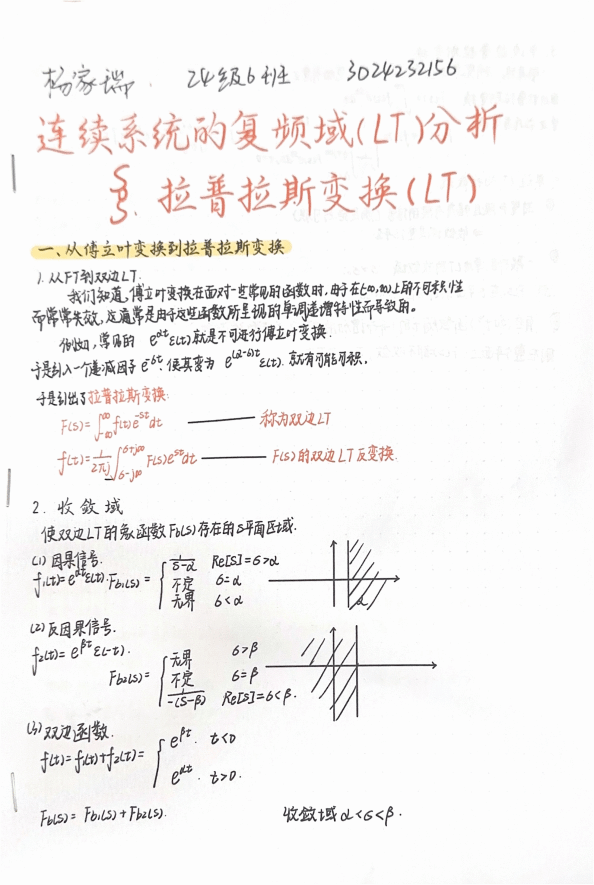 杨家瑞. 24级6班 3024232156
连续系统的复频域(LT)分析
§. 拉普拉斯变换(LT)
一、从傅立叶变换到拉普拉斯变换
1. 从FT到双边LT.
我们知道,傅立叶变换在面对一些常见的函数时,由于在(-∞,∞)上的不可积性
而常常失效,这通常是由于这些函数所呈现的单调递增特性而导致的。
例如,常见的 e^{αt}ε(t)就是不可进行傅立叶变换.
于是引入一个递减因子 e^{-σt}. 使其变为 e^{(α-σ)t}ε(t). 就有可能可积.
于是引出了拉普拉斯变换:
F(s)=∫_{-∞}^{∞} f(t)e^{-st}dt —— 称为双边LT
f(t)=\frac{1}{2πj}∫_{σ-j∞}^{σ+j∞} F(s)e^{st}dt —— F(s)的双边LT反变换.
2. 收敛域
使双边LT的象函数F_b(s)存在的s平面区域.
(1) 因果信号.
f₁(t)=e^{αt}ε(t). F_{b1}(s)= { \frac{1}{s-α} Re[s]=σ>α
不定 σ=α
无界 σ<α
α
(2) 反因果信号.
f₂(t)=e^{βt}ε(-t).
F_{b2}(s)= { 无界 σ>β
不定 σ=β
\frac{1}{-(s-β)} Re[s]=σ<β.
(3) 双边函数.
f(t)=f₁(t)+f₂(t)= { e^{βt}. t<0
e^{αt}. t>0.
F_b(s)= F_{b1}(s)+F_{b2}(s). 收敛域 α<σ<β.